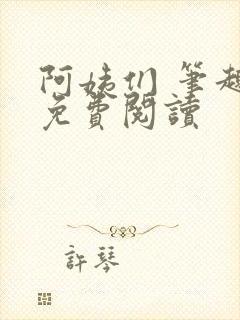 阿姨们 筆趣
免費閱讀
許琴